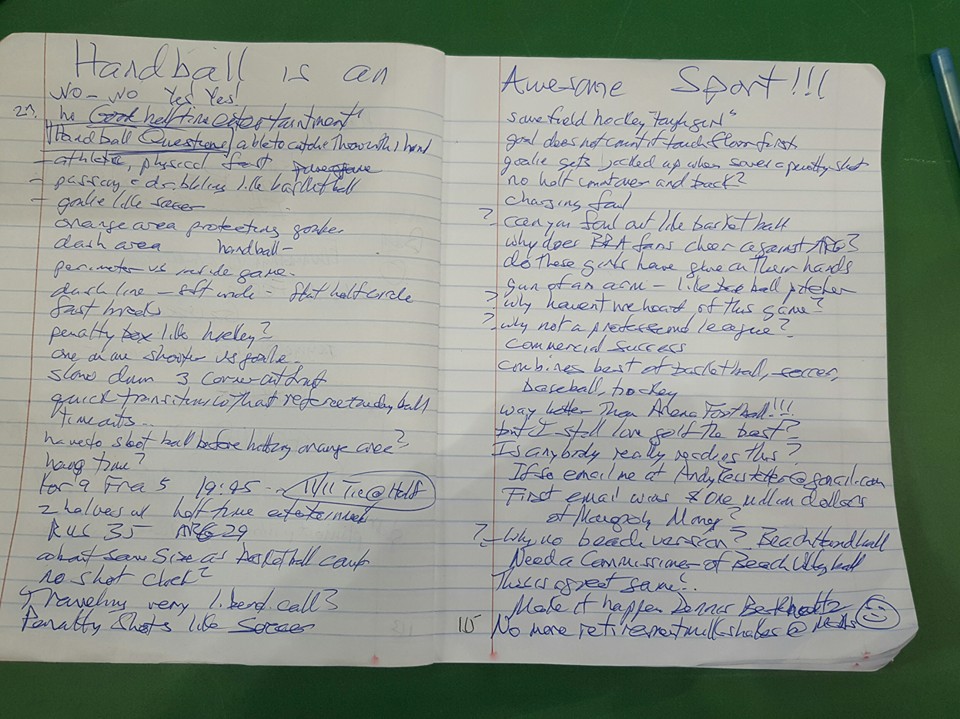 Handball is an
NO - NO Yes! Yes!
27. he Good halftime entertainment
Handball Questions able to catch & throw with 1 hand
- athletic, physical, fast
- passing & dribbling like basketball
- goalie like soccer
orange area protecting goalie
dash area handball -
perimeter vs inside game.
dash line - half circle
fast break
penalty box like hockey?
one on one shooter vs goalie
slow down 3 corner
quick transition so that referee ball
timeouts
have to shoot ball before hitting orange area?
hang time?
Kor 9 Fra 5 19:45 - 11/11 Tie @ Half
2 halves w/ half time
RUS 35 ARG 29
about same size as basketball court
no shot clock?
Traveling very liberal call?
Penalty shots like Soccer
Awesome Sport!!!
some field hockey "tough girls"
goal does not count if touch floor first
goalie gets jacked up when saves a penalty shot
no half court over and back?
charging foul
? - can you foul out like basketball
why does BRA fans cheer against ARG?
do these girls have glue on their hands
gun of an arm - like ball pitcher
? why haven't we heard of this game?
? why not a professional league?
commercial success
combines best of basketball, soccer,
baseball, hockey
way better Than Arena Football!!!
but I still love golf the best?
Is anybody really reading this?
If so email me at @gmail.com
First email wins $ one million dollars
of Monopoly Money?
? - Why no beach version? Beach Handball
Need a Commissioner of Beach Volleyball
This is a great game!
Make it happen Dennis
10 No more retirement milkshakes @